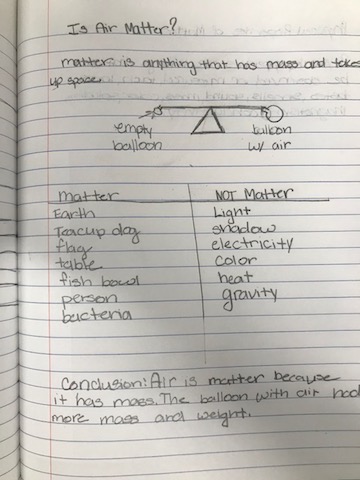 Is Air Matter?
matter: is anything that has mass and takes
up space.
empty
balloon
balloon
w/ air
matter
NOT Matter
Earth
Light
Teacup dog
shadow
flag
electricity
table
color
fish bowl
heat
person
gravity
bacteria
Conclusion: Air is matter because
it has mass. The balloon with air had
more mass and weight.